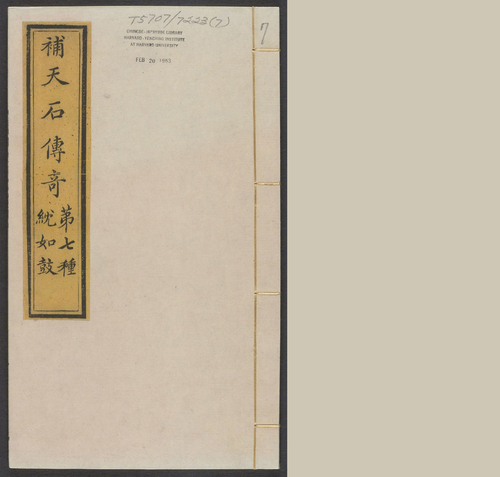 T5707/7223(7)
CHINESE-JAPANESE LIBRARY
HARVARD-YENCHING INSTITUTE
AT HARVARD UNIVERSITY
FEB 20 1963
7
補天石傳奇
第七種
紞如鼓